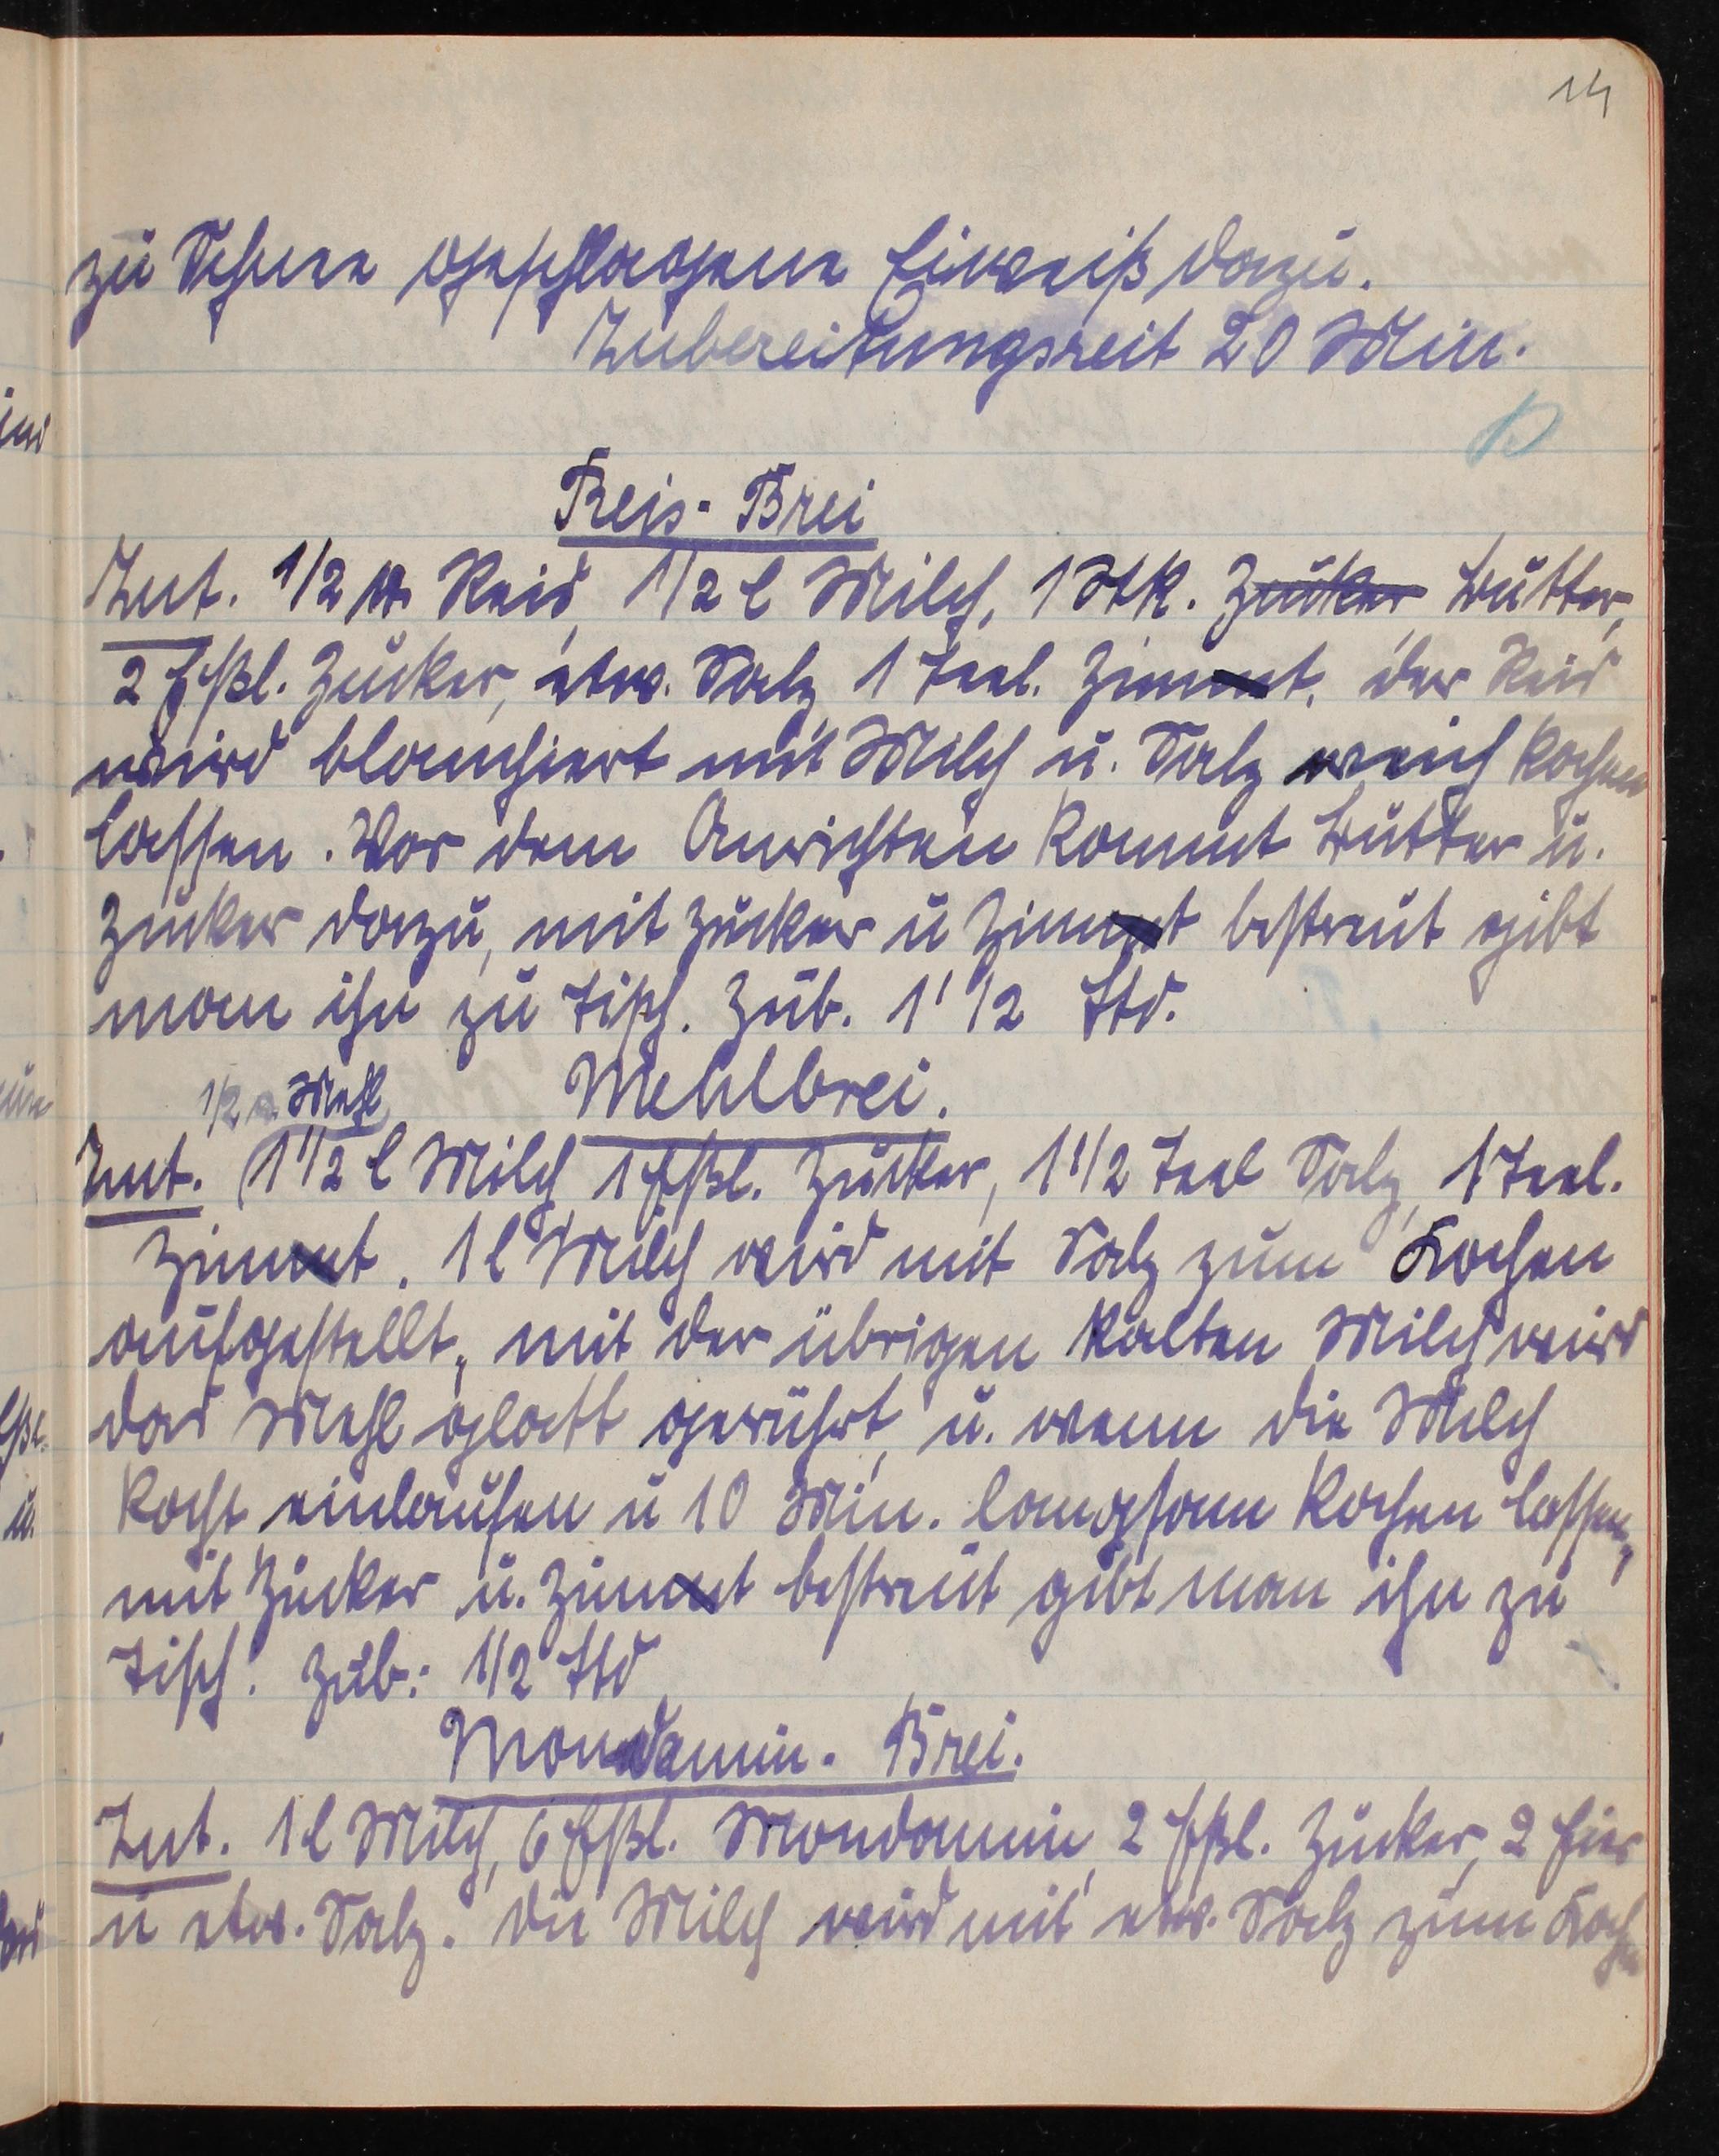 14
zu Schnee geschlagene Eiweiß dazu.
Zubereitungszeit 20 Min.
Reis- Brei
Zut. 1/2 ℔ Reis, 1/2 l Milch, 1 Stk. Zuker Butter,
2 Eßl. Zucker, etw. Salz, 1 Teel. Zimt, der Reis
wird blanchiert mit Milch u. Salz weich kochen
lassen. Vor dem Anrichten kommt Butter u.
Zucker dazu, mit Zucker u Zimt bestreut gibt
man ihn zu Tisch. Zub. 1 1/2 Std.
Mehlbrei.
1/2 ℔ Mehl
Zut. 1 1/2 l Milch 1 Eßl. Zucker, 1 1/2 Teel Salz, 1 Teel.
Zimt. 1 l Milch wird mit Salz zum Kochen
aufgestellt, mit der übrigen kalten Milch wird
das Mehl glatt gerührt, u. wenn die Milch
kocht einlaufen u 10 Min. langsam kochen lassen,
mit Zucker u. Zimt bestreut gibt man ihn zu
Tisch. Zub.: 1/2 Std
Mondamin- Brei.
Zut. 1 l Milch, 6 Eßl. Mondamin, 2 Eßl. Zucker, 2 Eier
u etw. Salz. Die Milch wird mit etw. Salz zum Kochen